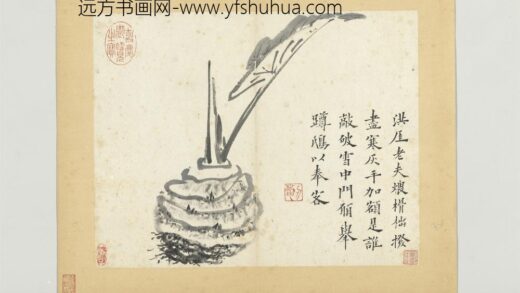 远方书画网-www.yfshuhua.com
洪厓老夫煨榾柮撥
盡寒灰手加額是誰
敲破雪中門願舉
蹲鴟以奉客